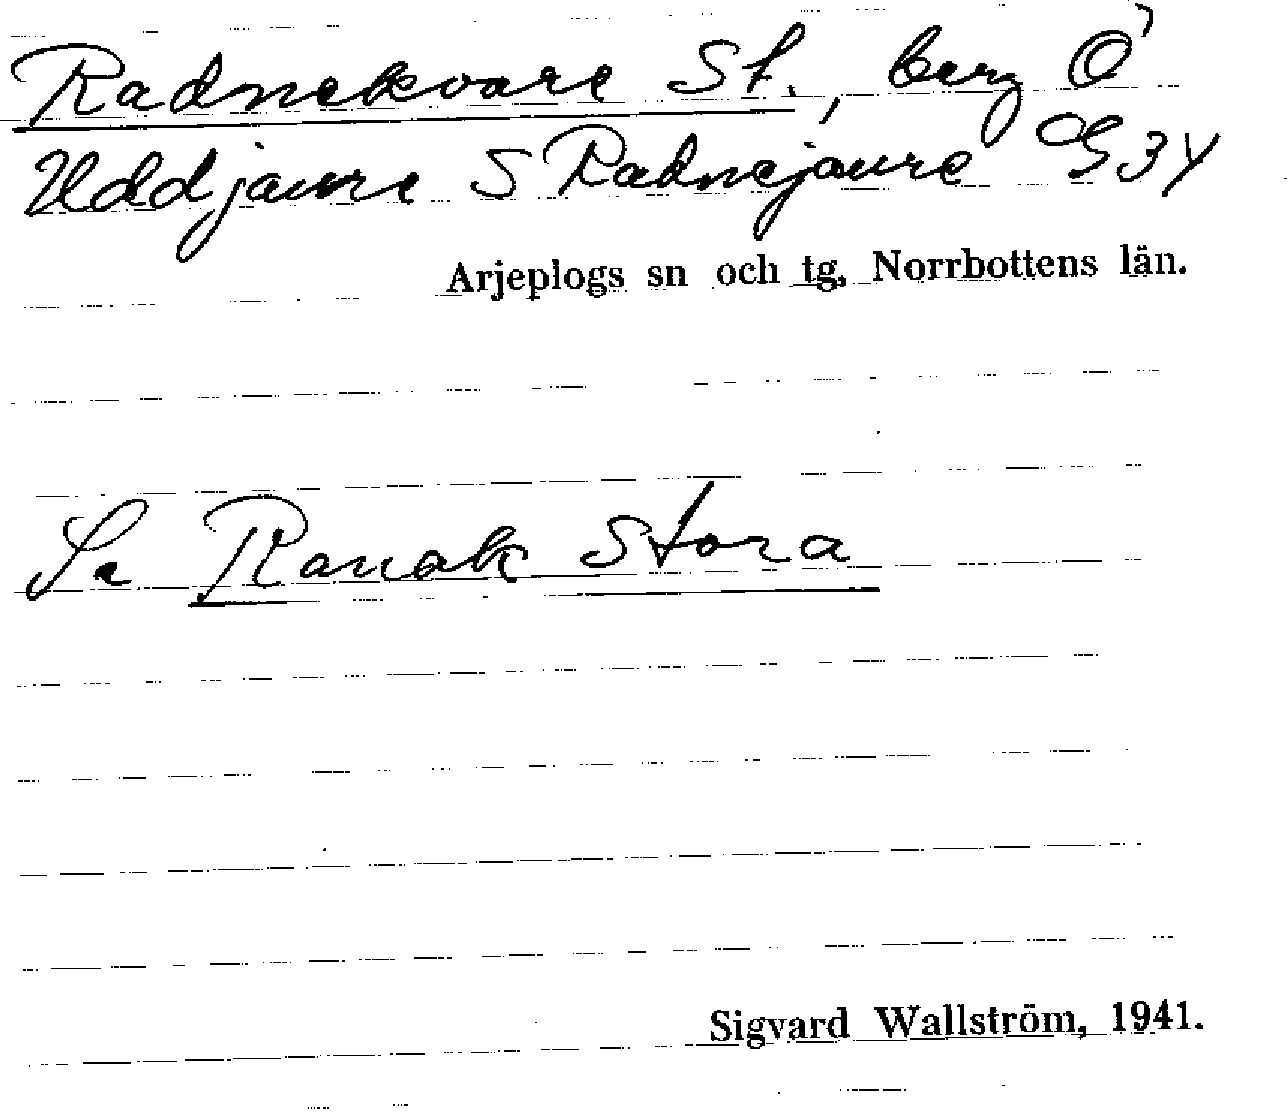 Radnekvare St., berg Ö
Uddjaure S Radnejaure G34
Arjeplogs sn och tg, Norrbottens län.
Se Ranak Stora
Sigvard Wallström, 1941.